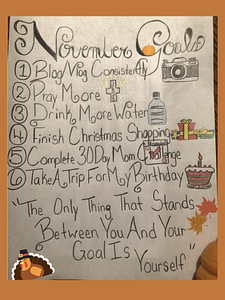 November Goals
1 Blog/Vlog Consistently
2 Pray More
3 Drink More Water
4 Finish Christmas Shopping
5 Complete 30 Day Mom Challenge
6 Take A Trip For My Birthday
"The Only Thing That Stands
Between You And Your
Goal Is
Yourself"